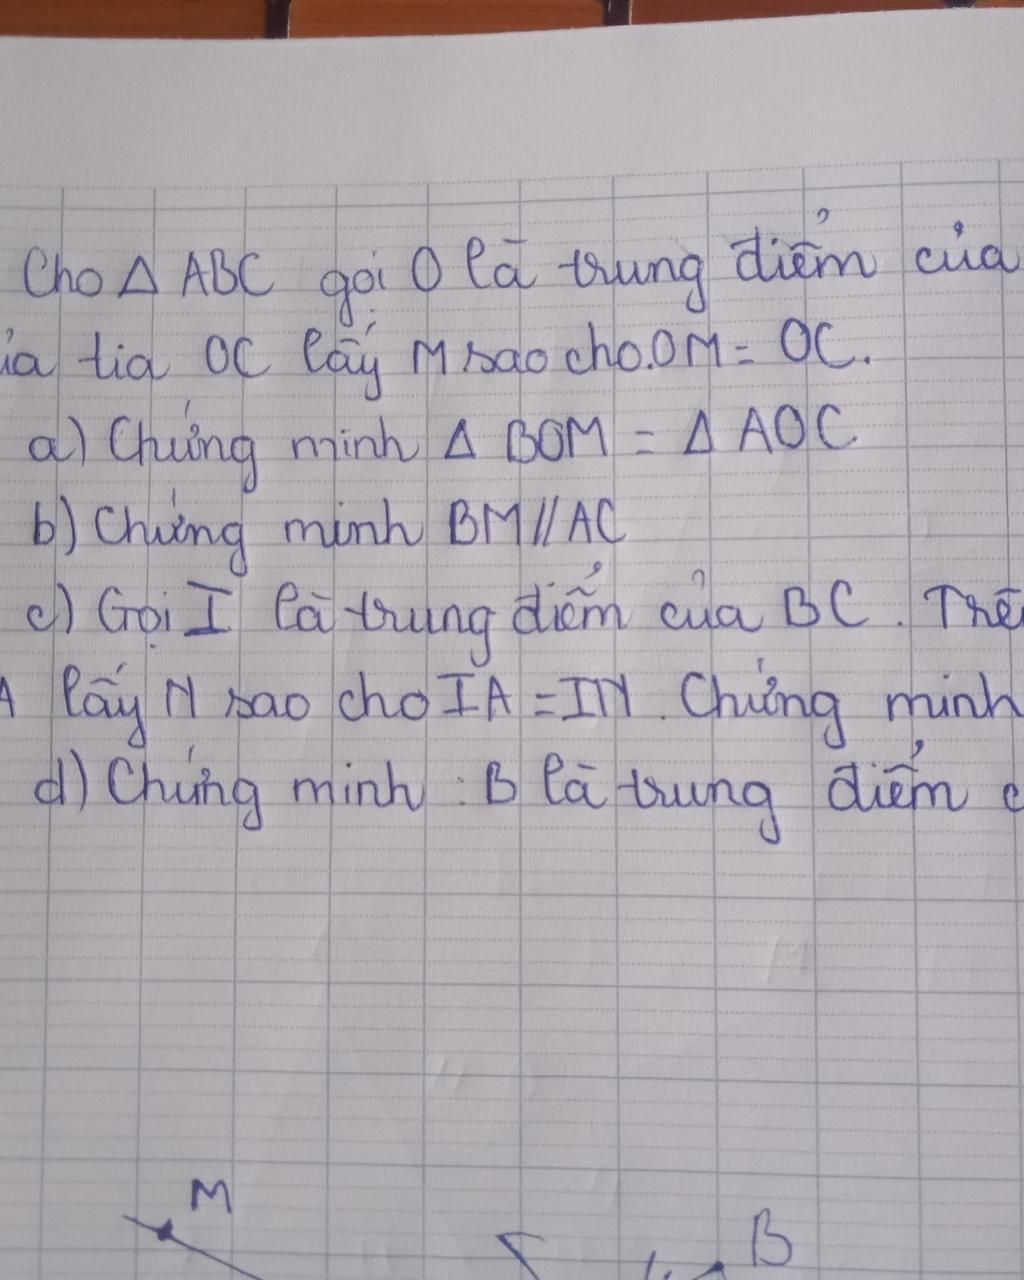 Cho Δ ABC gọi O là trung điểm của
tia OC lấy M sao cho.OM = OC.
a) Chứng minh Δ BOM = Δ AOC
b) Chứng minh BM//AC
c) Gọi I là trung điểm của BC. Trê
A lấy N sao cho IA = IN. Chứng minh
d) Chứng minh : B là trung điểm c
M
B